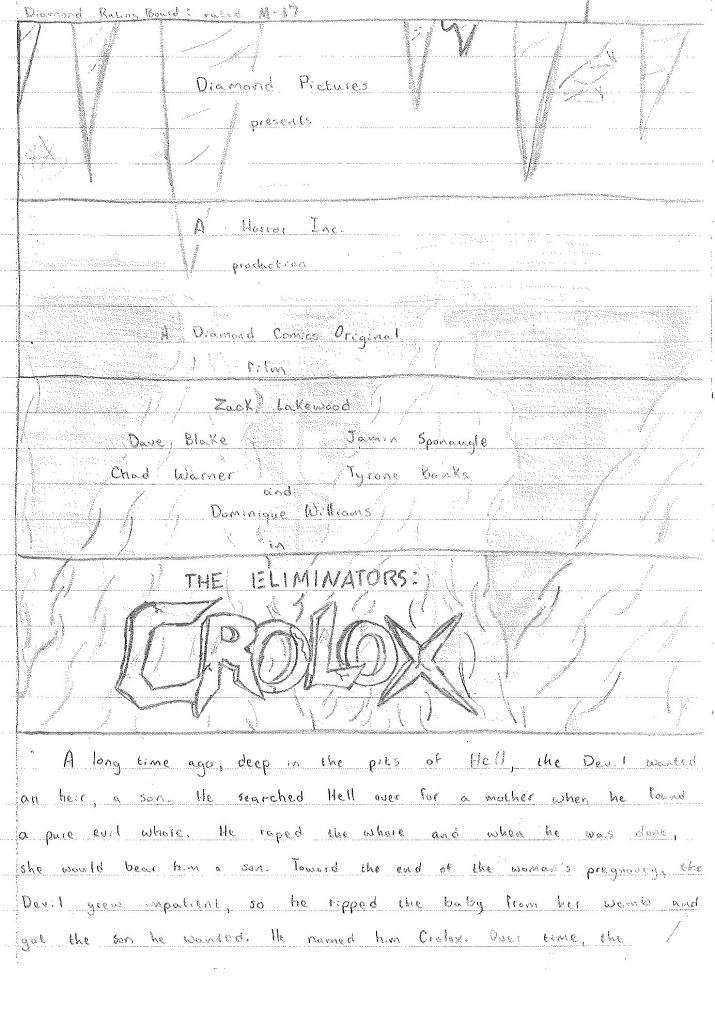 Diamond Rating Board: rated M-17
Diamond Pictures
presents
A Horror Inc.
production
A Diamond Comics Original
Film
Zack Lakewood
Dave Blake Jamin Sponaugle
Chad Warner Tyrone Banks
and
Dominique Williams
in
THE ELIMINATORS:
CROLOX
A long time ago, deep in the pits of Hell, the Devil wanted
an heir, a son. He searched Hell over for a mother when he found
a pure evil whore. He raped the whore and when he was done,
she would bear him a son. Toward the end of the woman's pregnancy, the
Devil grew impatient, so he ripped the baby from her womb and
got the son he wanted. He named him Crolox. Over time, the